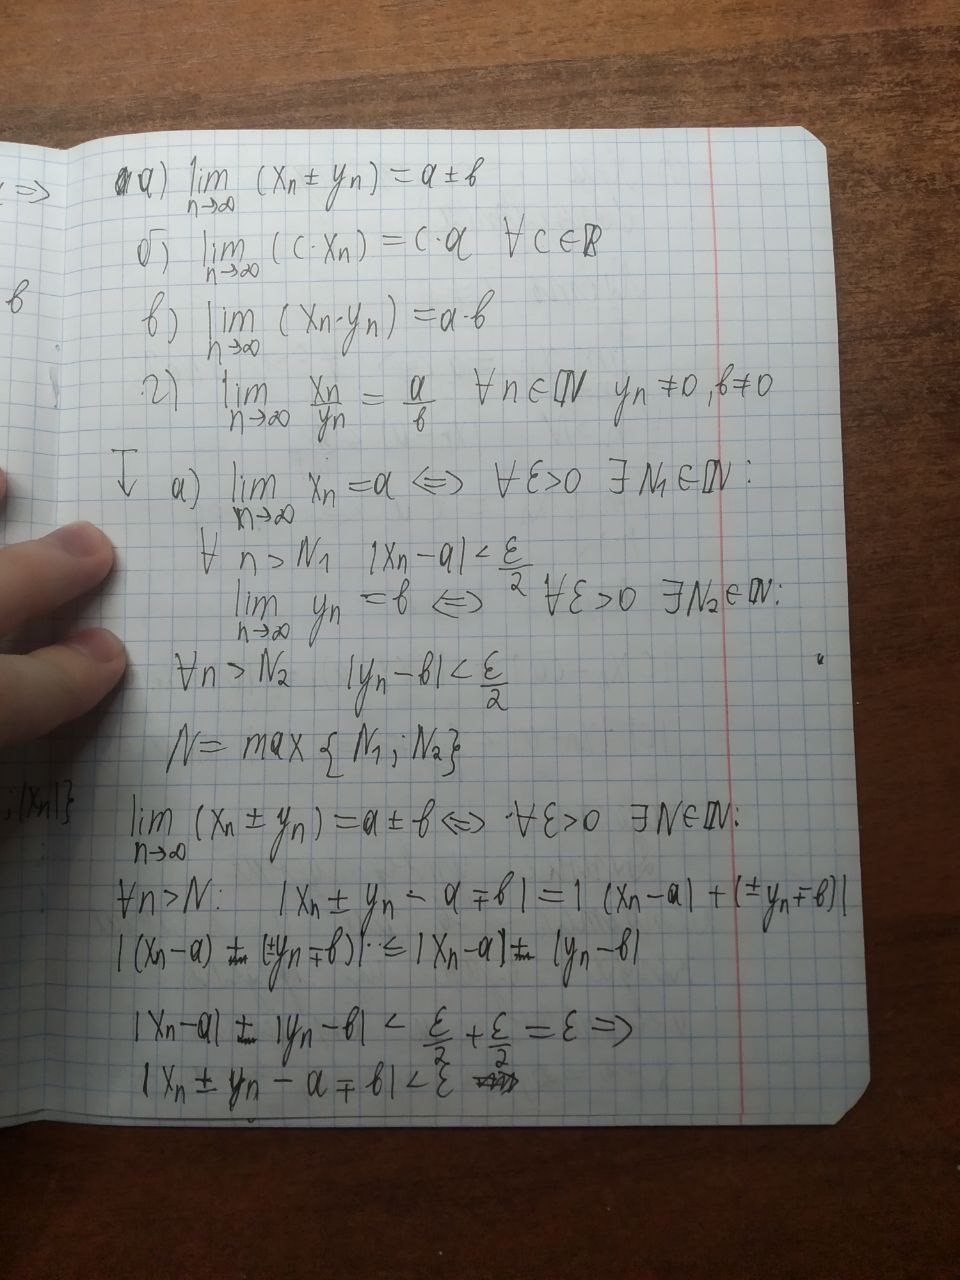 =>
в
; |xn|}
а) lim n→∞ (xn ± yn) = a ± b
б) lim n→∞ (c·xn) = c·a ∀c∈ℝ
в) lim n→∞ (xn·yn) = a·b
г) lim n→∞ xn/yn = a/b ∀n∈ℕ yn ≠ 0, b ≠ 0
↓ а) lim n→∞ xn = a <=> ∀ε>0 ∃N1∈ℕ:
∀ n > N1 |xn - a| < ε/2
lim n→∞ yn = b <=> ∀ε>0 ∃N2∈ℕ:
∀n > N2 |yn - b| < ε/2
N = max {N1; N2}
lim n→∞ (xn ± yn) = a ± b <=> ∀ε>0 ∃N∈ℕ:
∀n>N: |xn ± yn - a ∓ b| = | (xn - a) + (±yn ∓ b)|
|(xn - a) + (±yn ∓ b)| ≤ |xn - a| + |yn - b|
|xn - a| + |yn - b| < ε/2 + ε/2 = ε =>
|xn ± yn - a ∓ b| < ε